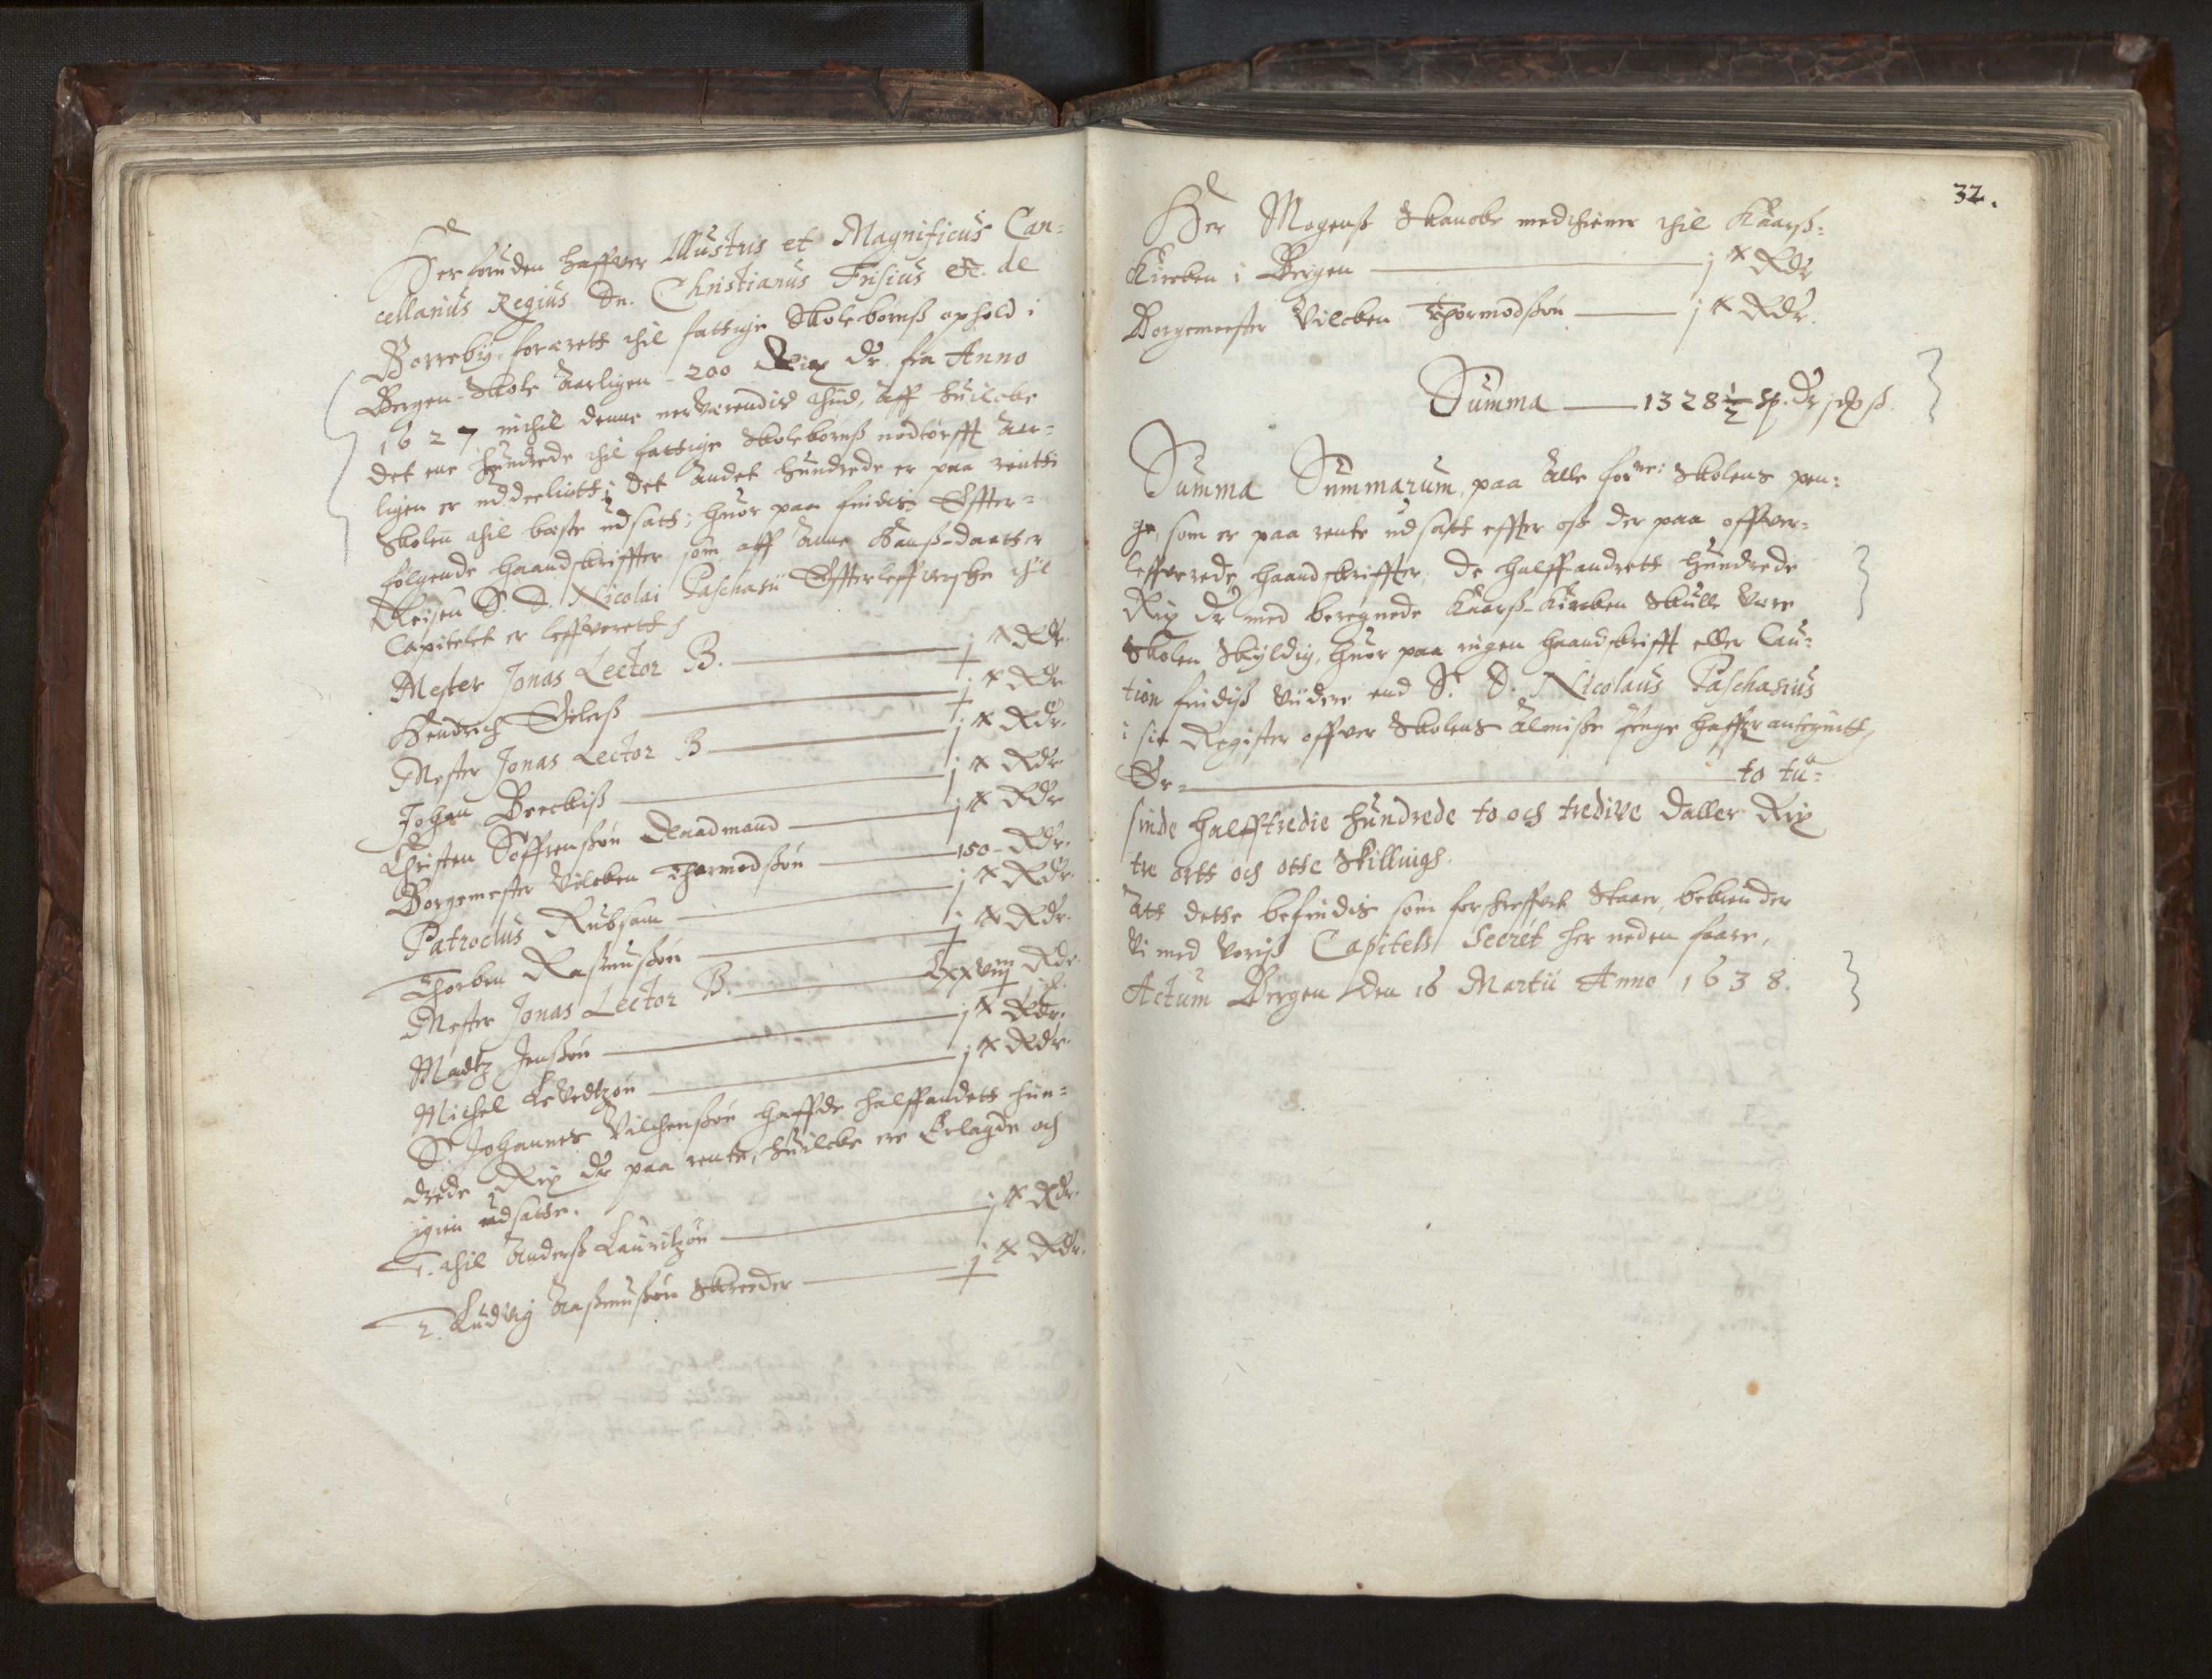 Her foruden haffver Illustris et Magnificus Can=
cellarius Regius Dn. Christianus Frisius etc. de
Borreby, foræret thil fattige Skolebørnß ophold i
Bergen-Skole Aarligen - 200 Rix Dr. fra Anno
1627 indtil denne nerværendis thid, Aff huilcke
det ene hundrede thil fattige Skolebørnß nødtørfft Aar=
ligen er uddeeliett; Det Andet hundrede er paa rentte
Skolen thil beste udsatt; huor paa findis Effter=
følgende haandskriffter som aff Anna Hanß-daatter
S. D. Nicolai Paschasii Effterleffverske thil
Capitelet er leffverett
Mester Jonas Lector B. j C Rdr.
Hendrich Gilerß j C Rdr.
Mester Jonas Lector B j C Rdr.
Johan Brockiß j C Rdr.
Christen Søffrensøn Raadmand j C Rdr
Borgemester Vilcken Thormodsøn 150 - Rdr.
Patroclus Rubsam j C Rdr.
Thorben Rasmussøn j C Rdr.
Mester Jonas Lector B. Lxxviij Rdr.
Madtz Jensøn j C Rdr.
Michel j C Rdr.
S. Johannes Vilchensøn haffde halffandett hun=
drede Rix Dr paa rente, huilcke ere Erlagde och
igien udsatte.
1. thil Anderß Lauritzøn j C Rdr.
2. Ludvig Rasmussøn Skreder j C Rdr.
32.
Her Mogenß Skancke medthiener thil Kaarß=
Kircken i Bergen j C Rdr
Borgemester Vilcken Thormodsøn j C Rdr.
Summa 1328 1/2 sp. Dr
Summa Summarum, paa Alle forne: Skolens pen=
ge, som er paa rente udsatt effter oß der paa offver=
leffverede haandskriffter, De halffandrett hundrede
Rix Dr med beregnede Kaarß-Kircken Skulle være
Skolen Skyldig, huor paa ingen haandskrifft eller Cau=
tion findiß vidre end S. D. Nicolaus Paschasius
i sit Register offver Skolens Almiße penge haffver antegnett,
Er to tu=
sinde halfftredie hundrede to och tredive Daller Rix
tre ortt och otte Skillingh.
Att dette befindis som forskreffvet Staar, bekiender
Vi med voriß Capitels Secret her neden faare,
Actum Bergen den 16 Martii Anno 1638.